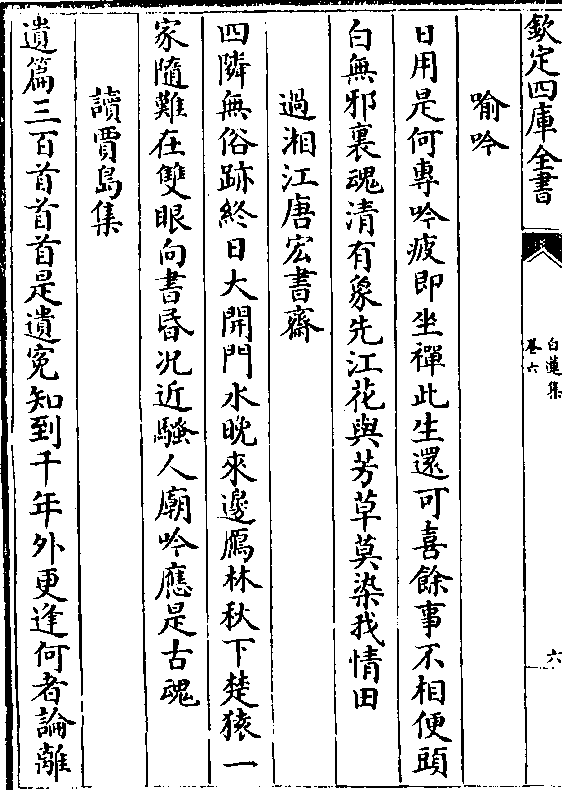 欽定四庫全書
白蓮集
卷六
六
喻吟
日用是何專吟疲即坐禪此生還可喜餘事不相便頭
白無邪裏魂清有象先江花與芳草莫染我情田
過湘江唐宏書齋
四隣無俗跡終日大開門水晚來邊鴈林秋下楚猿一
家隨難在雙眼向書昏况近騷人廟吟應是古魂
讀賈島集
遺篇三百首首首是遺寃知到千年外更逢何者論離